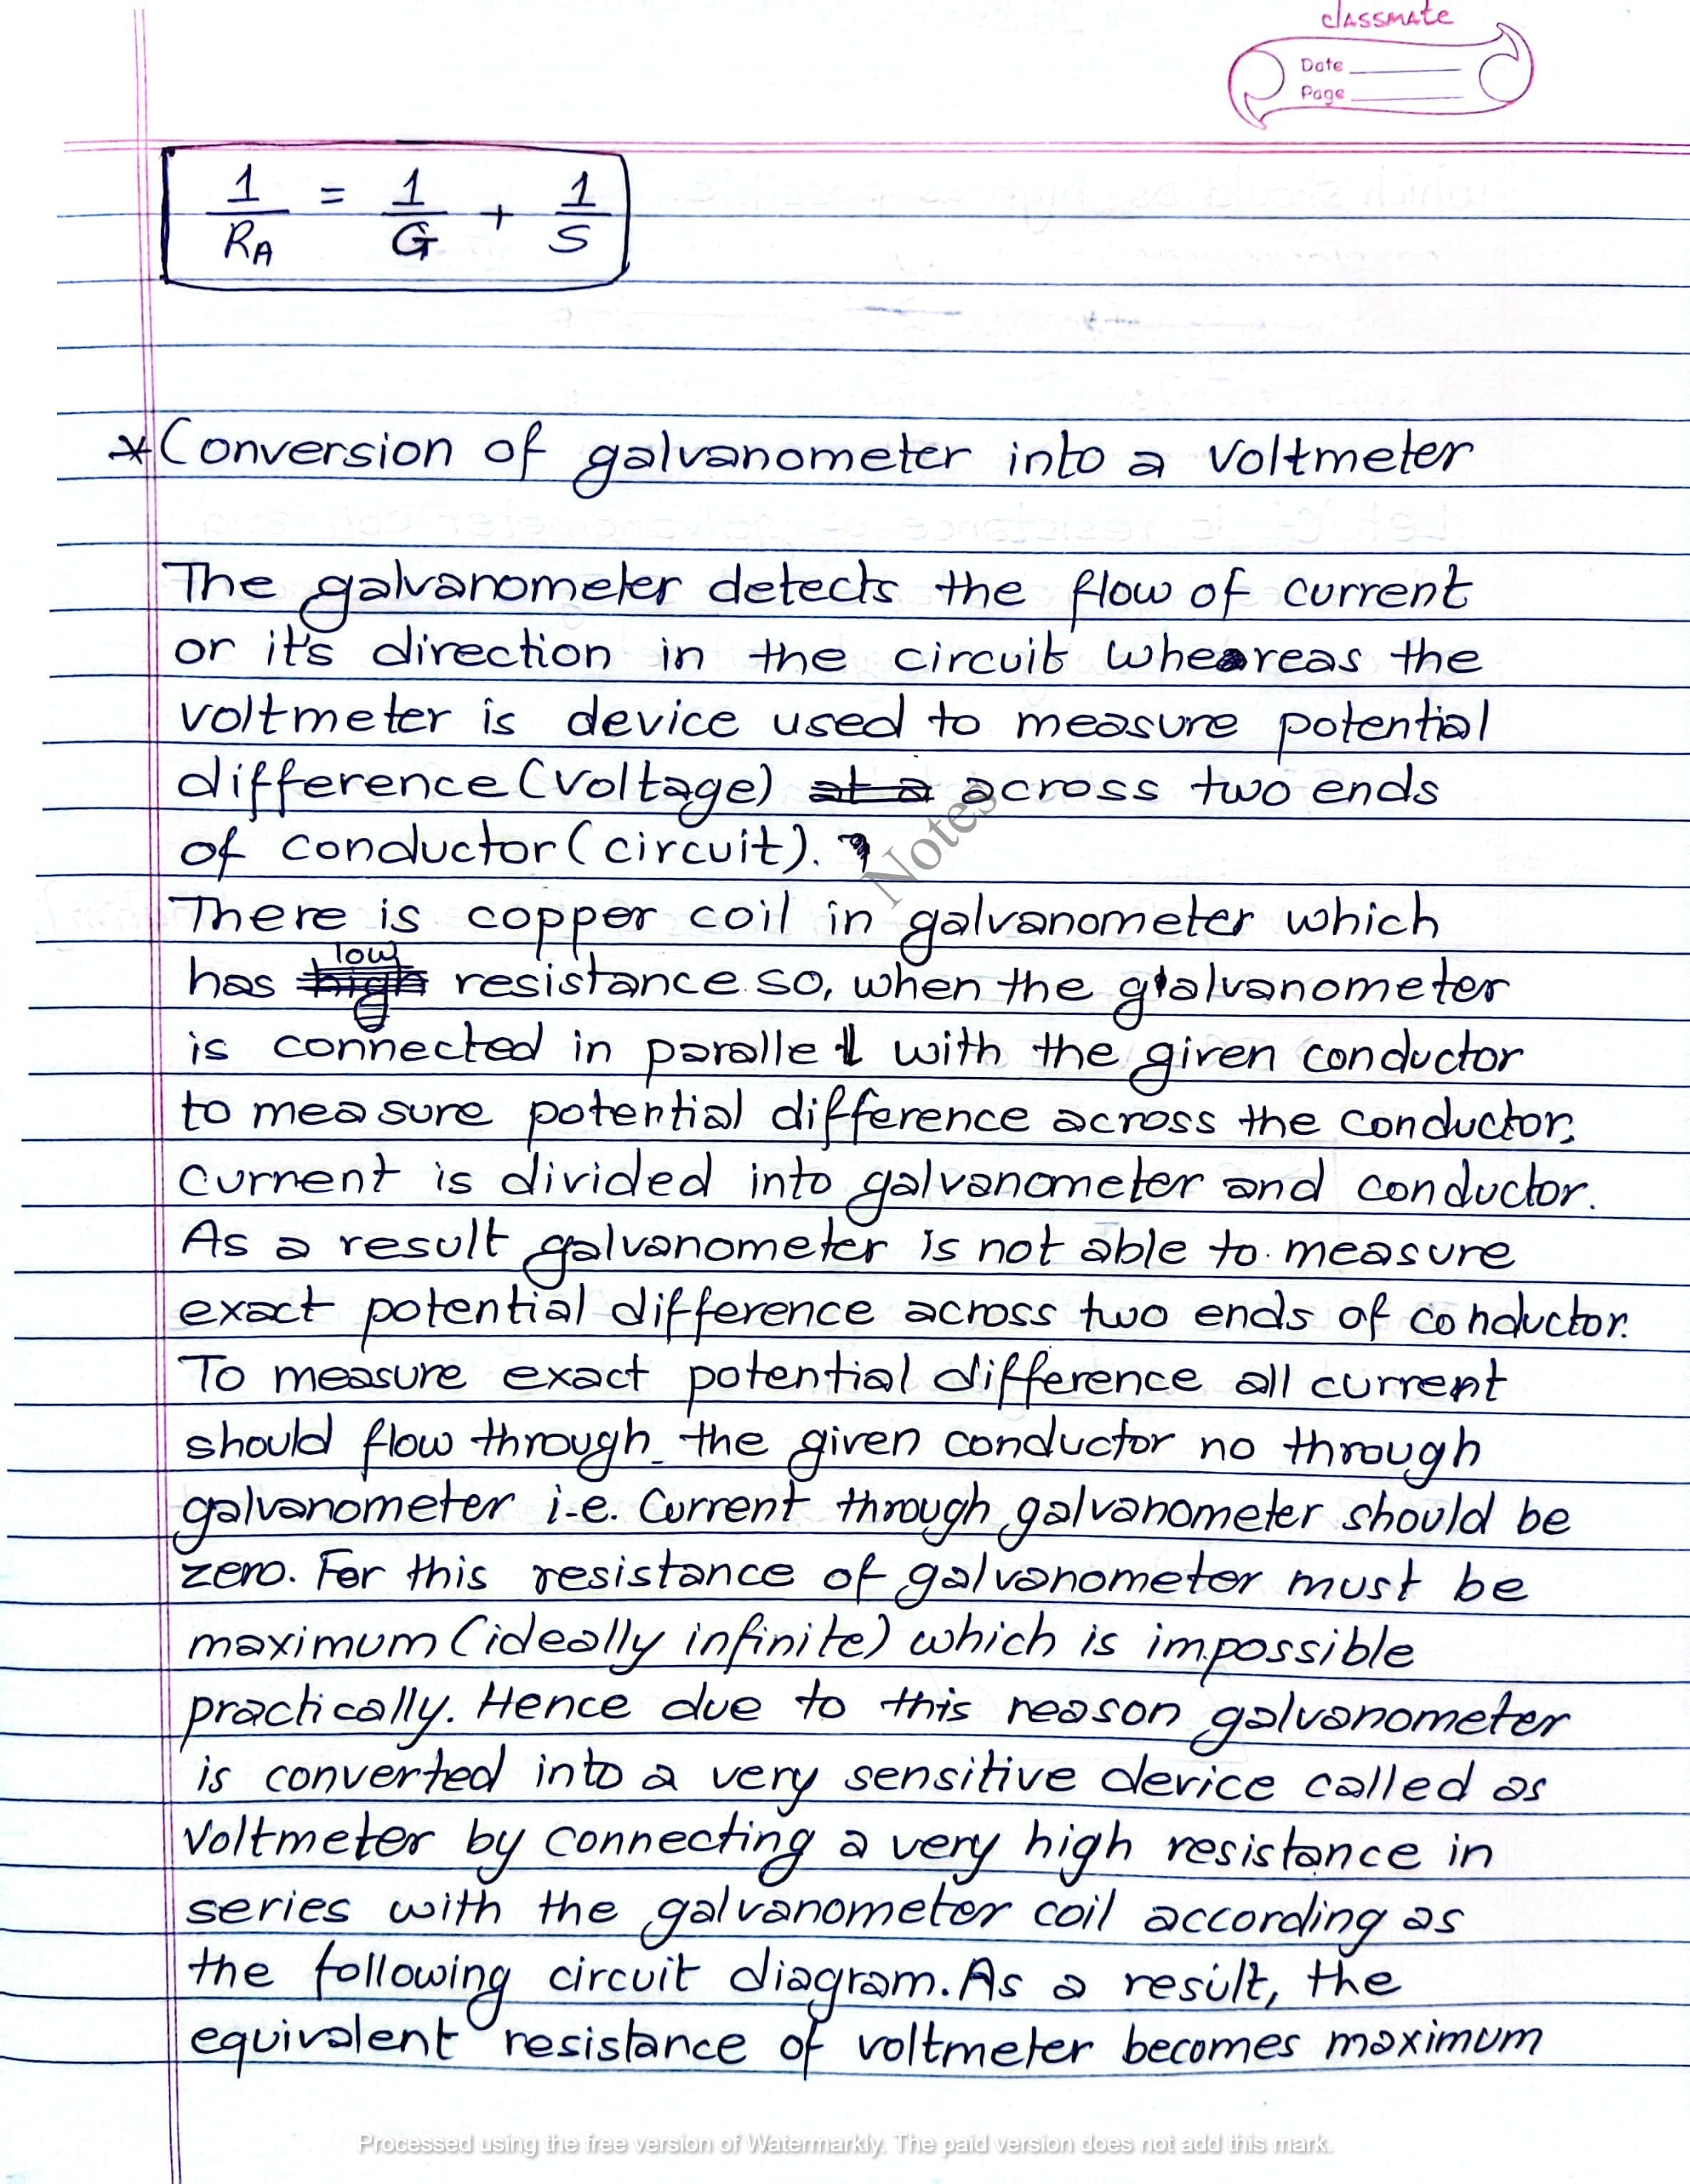 classmate
Date
Page
1/R_A = 1/G + 1/S
*Conversion of galvanometer into a voltmeter
The galvanometer detects the flow of current
or it's direction in the circuit whereas the
voltmeter is device used to measure potential
difference (voltage) ~~at a~~ across two ends
of conductor (circuit).
Notes
There is copper coil in galvanometer which
has ~~high~~ low resistance. so, when the galvanometer
is connected in parallel with the given conductor
to measure potential difference across the conductor,
current is divided into galvanometer and conductor.
As a result galvanometer is not able to measure
exact potential difference across two ends of conductor.
To measure exact potential difference all current
should flow through the given conductor no through
galvanometer i.e. Current through galvanometer should be
zero. For this resistance of galvanometer must be
maximum (ideally infinite) which is impossible
practically. Hence due to this reason galvanometer
is converted into a very sensitive device called as
voltmeter by connecting a very high resistance in
series with the galvanometer coil according as
the following circuit diagram. As a result, the
equivalent resistance of voltmeter becomes maximum
Processed using the free version of Watermarkly. The paid version does not add this mark.